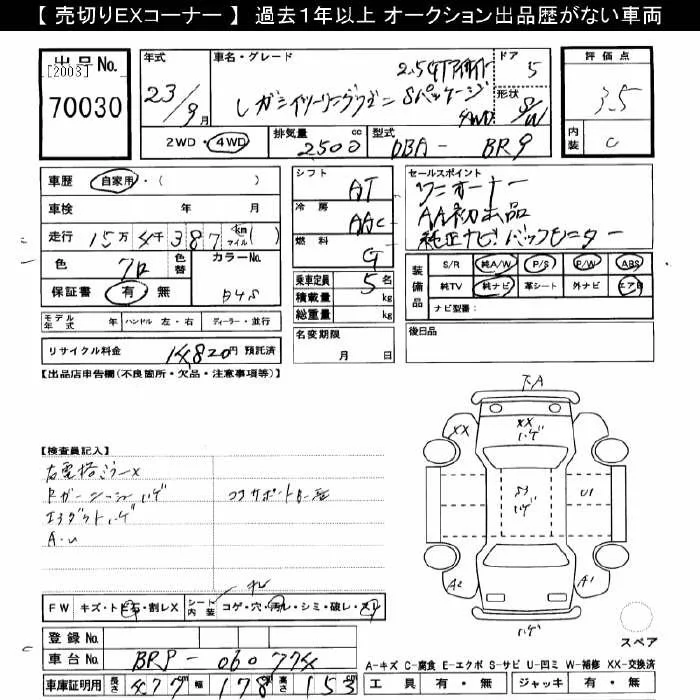 【 売切りEXコーナー 】 過去１年以上 オークション出品歴がない車両
出品No.
[2003]
70030
年式
23/9月
車名・グレード
2.5GTアイサイト
レガシィツーリングワゴン Sパッケージ
4WD
ドア
5
形状
S/W
評価点
3.5
内装
C
2WD・4WD
排気量 2500 cc
型式 DBA-BR9
車歴 自家用・( )
車検 年 月
走行 15万4千387 km マイル ( )
色 クロ
色替
カラーNo.
D4S
保証書 有・無
モデル年式 年
ハンドル 左・右
ディーラー・並行
リサイクル料金 14820円 預託済
シフト AT
冷房 AAC
燃料 G
乗車定員 5名
積載量 kg
総重量 kg
名変期限
月 日
セールスポイント
ワンオーナー
AA初出品
純正ナビ バックモニター
装備品
S/R 純A/W P/S P/W ABS
純TV 純ナビ 革シート 外ナビ エアB
ナビ型番:
後日品
【出品店申告欄(不良箇所・欠品・注意事項等)】
【検査員記入】
右電格ミラーX
エアダクトハゲ
A・U
コアサポート
FW キズ・トビ石・割レX
シート内装 コゲ・穴・汚レ・シミ・破レ・スレ
登録No.
車台No. BR9-060774
車庫証明用 長さ 477cm 幅 178cm 高さ 153cm
下A
XX
XX
ハゲ
ハゲ
U1
A2
A1
ハゲ
スペア
A-キズ C-腐食 E-エクボ S-サビ U-凹ミ W-補修 XX-交換済
工具 有・無 ジャッキ 有・無